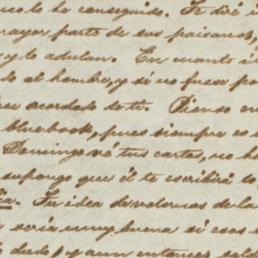 lo he conseguido. Te diré
mayor parte de sus paisanos,
y le adulan. En cuanto
do al hombre, y si no fuese por
acordado de ti. Pienso en
bluebook, pues siempre es
Domingo vé tus cartas, no
supongo que él te escribirá
Tu idea de volvernos de la
sería muy buena si esos
y aun entonces